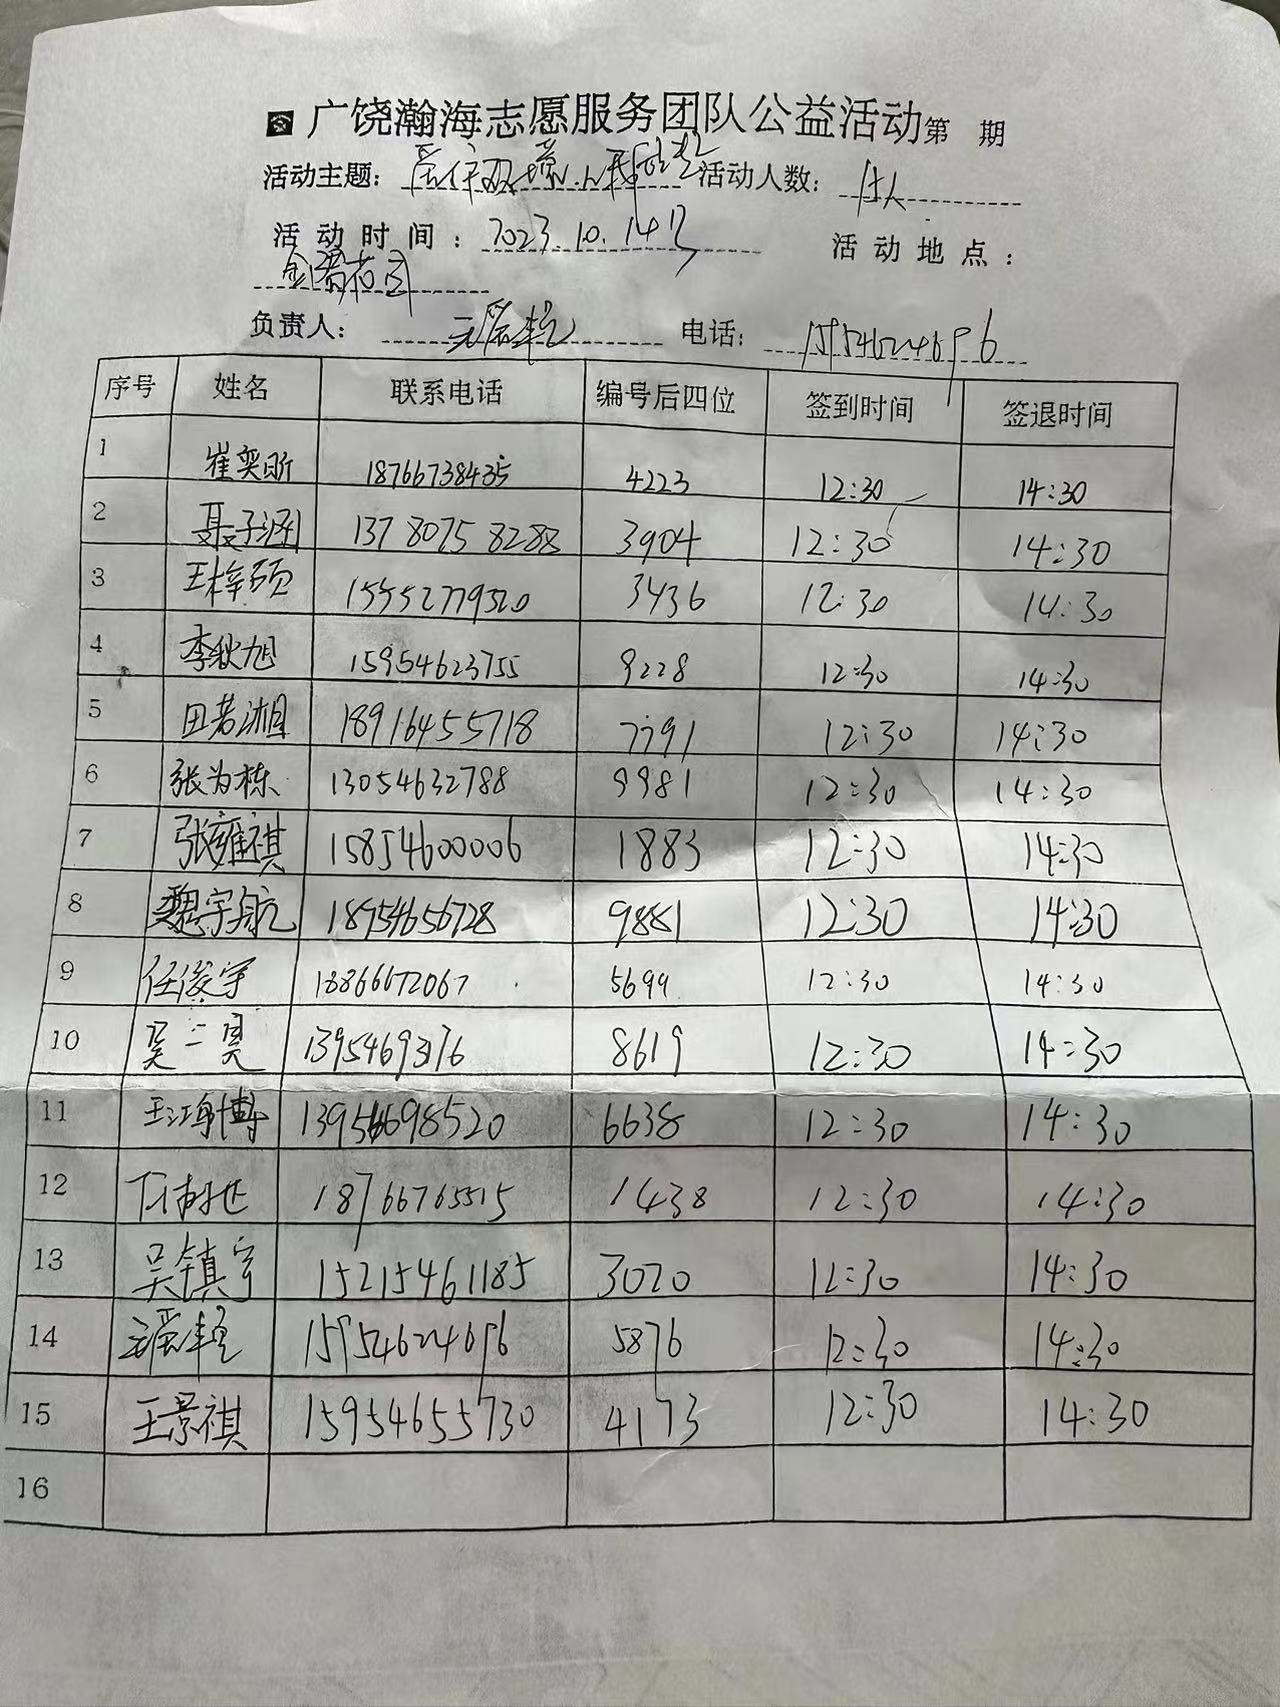 广饶瀚海志愿服务团队公益活动第 期
活动主题: 活动人数: 15人
活动时间: 2023.10.14日 活动地点:
负责人: 电话: 15954624696
序号 姓名 联系电话 编号后四位 签到时间 签退时间
1 崔奕昕 18766738435 4223 12:30 14:30
2 聂子涵 13780758288 3904 12:30 14:30
3 王梓硕 15552779520 3436 12:30 14:30
4 李秋旭 15954623755 9228 12:30 14:30
5 田若湘 18916455718 7791 12:30 14:30
6 张为栋 13054632788 9981 12:30 14:30
7 张雍祺 15854600006 1883 12:30 14:30
8 魏宇航 18954656728 9881 12:30 14:30
9 任俊宇 18866672067 5699 12:30 14:30
10 吴一昊 13954693176 8619 12:30 14:30
11 王鸿博 13954698520 6638 12:30 14:30
12 18766765515 1438 12:30 14:30
13 吴镇宇 15215461185 3020 12:30 14:30
14 15954624696 5876 12:30 14:30
15 王景祺 15954655730 4173 12:30 14:30
16